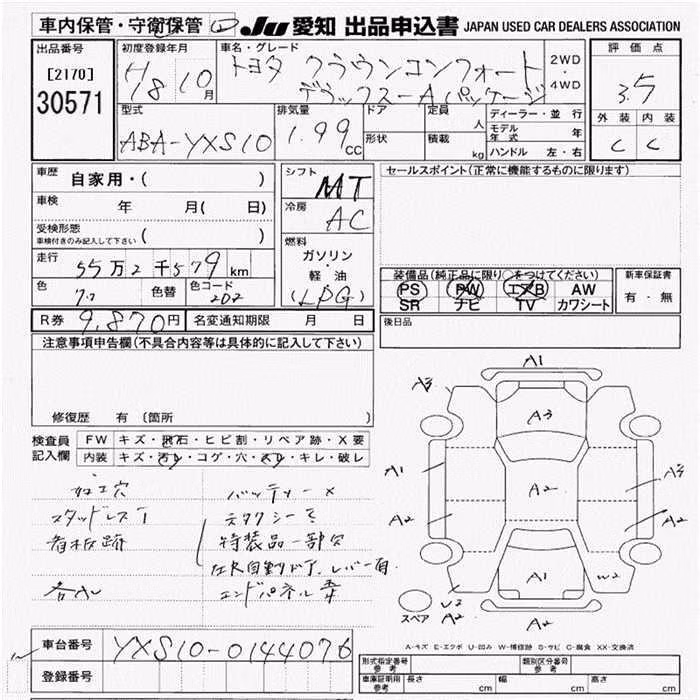 車内保管・守衛保管
JU 愛知 出品申込書 JAPAN USED CAR DEALERS ASSOCIATION
出品番号
[2170]
30571
初度登録年月
H18 10月
車名・グレード
トヨタ クラウンコンフォート
デラックスーAパッケージ
2WD
・
4WD
評価点
3.5
外装 内装
C C
型式
ABA-YXS10
排気量
1.99
CC
ドア
形状
定員
人
積載
kg
ディーラー・並行
モデル年式 年
ハンドル 左・右
車歴
自家用・( )
車検
年 月( 日)
受検形態
車検付きのみ記入して下さい ( )
走行
55万2千579km
色
色替
色コード
202
R券 9,870円
名変通知期限 月 日
シフト
MT
冷房
AC
燃料
ガソリン・
軽・油
(LPG)
セールスポイント(正常に機能するものに限ります)
装備品(純正品に限り○をつけてください)
PS PW エアB AW
SR ナビ TV カワシート
新車保証書
有・無
後日品
注意事項申告欄(不具合内容等は具体的に記入して下さい)
修復歴 有 〔箇所 〕
検査員
記入欄
FW キズ・飛石・ヒビ割・リペア跡・X要
内装 キズ・汚れ・コゲ・穴・スレ・キレ・破レ
加工穴
バッテリー×
スタッドレス
看板跡
特装品一部欠
エンドパネル
A1
A3
A3
A1
A2
A2
A2
A1
W2
U2
A2
A2
スペア
A-キズ E-エクボ U-凹み W-補修跡 S-サビ C-腐食 XX-交換済
車台番号
YXS10-0144076
登録番号
型式指定番号
参考
類別区分番号
参考
車庫証明用
参考
長さ cm
幅 cm
高さ cm